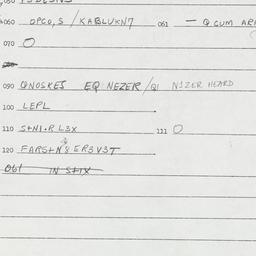 060 OPCO,S / KABLUKN7 061 — Q CUM ARI
070 O
090 QNOSKES EQ NEZER / QI NIZER HEARD
100 LEPL
110 S+NI.R L3X 111 O
120 FARS+N 8 ER3V3T
061 IN S+IX